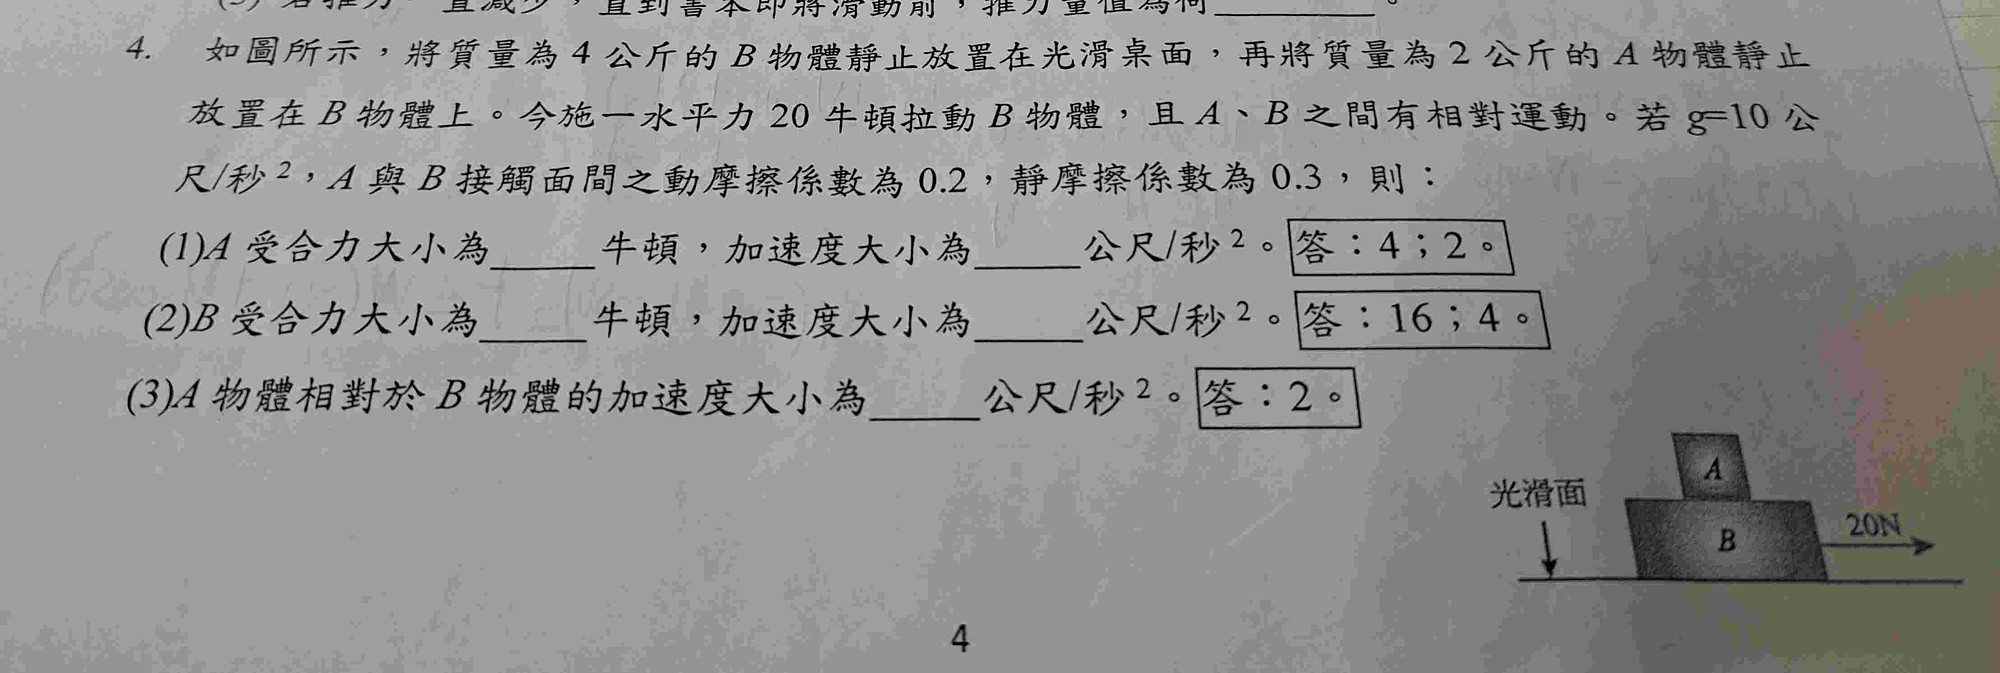 直到書本即將滑動前，推力量值為何________。
4. 如圖所示，將質量為 4 公斤的 B 物體靜止放置在光滑桌面，再將質量為 2 公斤的 A 物體靜止
放置在 B 物體上。今施一水平力 20 牛頓拉動 B 物體，且 A、B 之間有相對運動。若 g=10 公
尺/秒²，A 與 B 接觸面間之動摩擦係數為 0.2，靜摩擦係數為 0.3，則：
(1)A 受合力大小為_____牛頓，加速度大小為_____公尺/秒²。答：4；2。
(2)B 受合力大小為_____牛頓，加速度大小為_____公尺/秒²。答：16；4。
(3)A 物體相對於 B 物體的加速度大小為_____公尺/秒²。答：2。
A
光滑面
20N
B
4